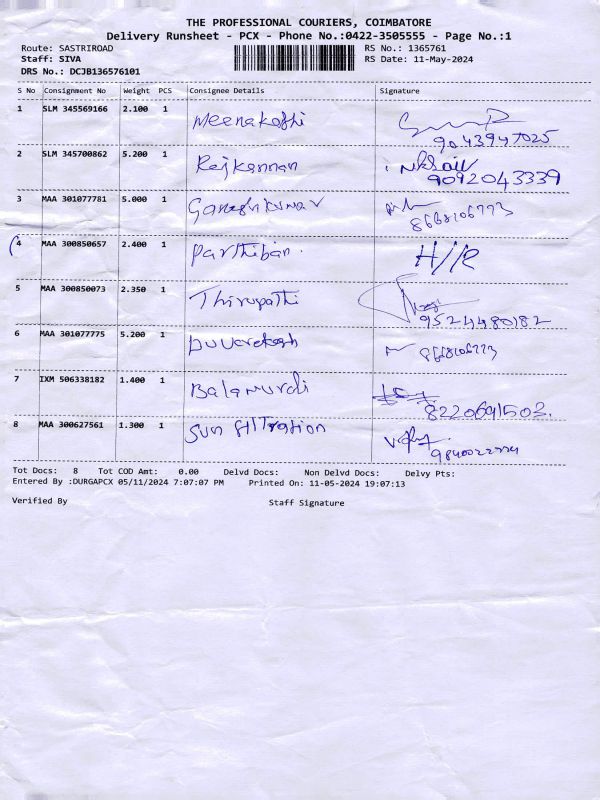 THE PROFESSIONAL COURIERS, COIMBATORE
Delivery Runsheet - PCX - Phone No.:0422-3505555 - Page No.:1
Route: SASTRIROAD RS No.: 1365761
Staff: SIVA RS Date: 11-May-2024
DRS No.: DCJB136576101
S No Consignment No Weight PCS Consignee Details Signature
1 SLM 345569166 2.100 1 Meenakashi 9043947025
2 SLM 345700862 5.200 1 Rajkannan 9092043339
3 MAA 301077781 5.000 1 8668106773
4 MAA 300850657 2.400 1 Parthiban. H/R
5 MAA 300850073 2.350 1 Thirupathi 9524480182
6 MAA 301077775 5.200 1 8668106773
7 IXM 506338182 1.400 1 Balamurali 8220691503.
8 MAA 300627561 1.300 1 Sun filtration
Tot Docs: 8 Tot COD Amt: 0.00 Delvd Docs: Non Delvd Docs: Delvy Pts:
Entered By :DURGAPCX 05/11/2024 7:07:07 PM Printed On: 11-05-2024 19:07:13
Verified By Staff Signature